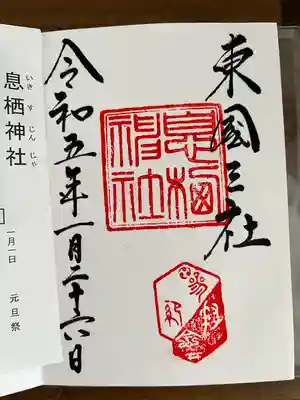 東國三社
息栖
神社
参拝
令和五年一月二十六日
いきすじんじゃ
息栖神社
一月一日 元旦祭